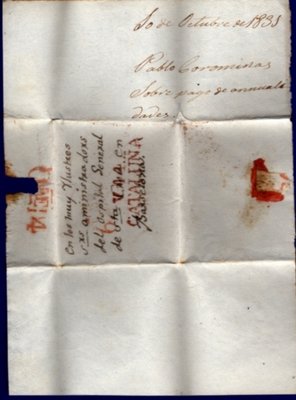 10 de Octubre de 1831
Pablo Corominas
Sobre pago de annuali
dades
En los muy Ylustres
Srs administradors
del Ospital General
de Sta en
Barcelona
CATALUÑA